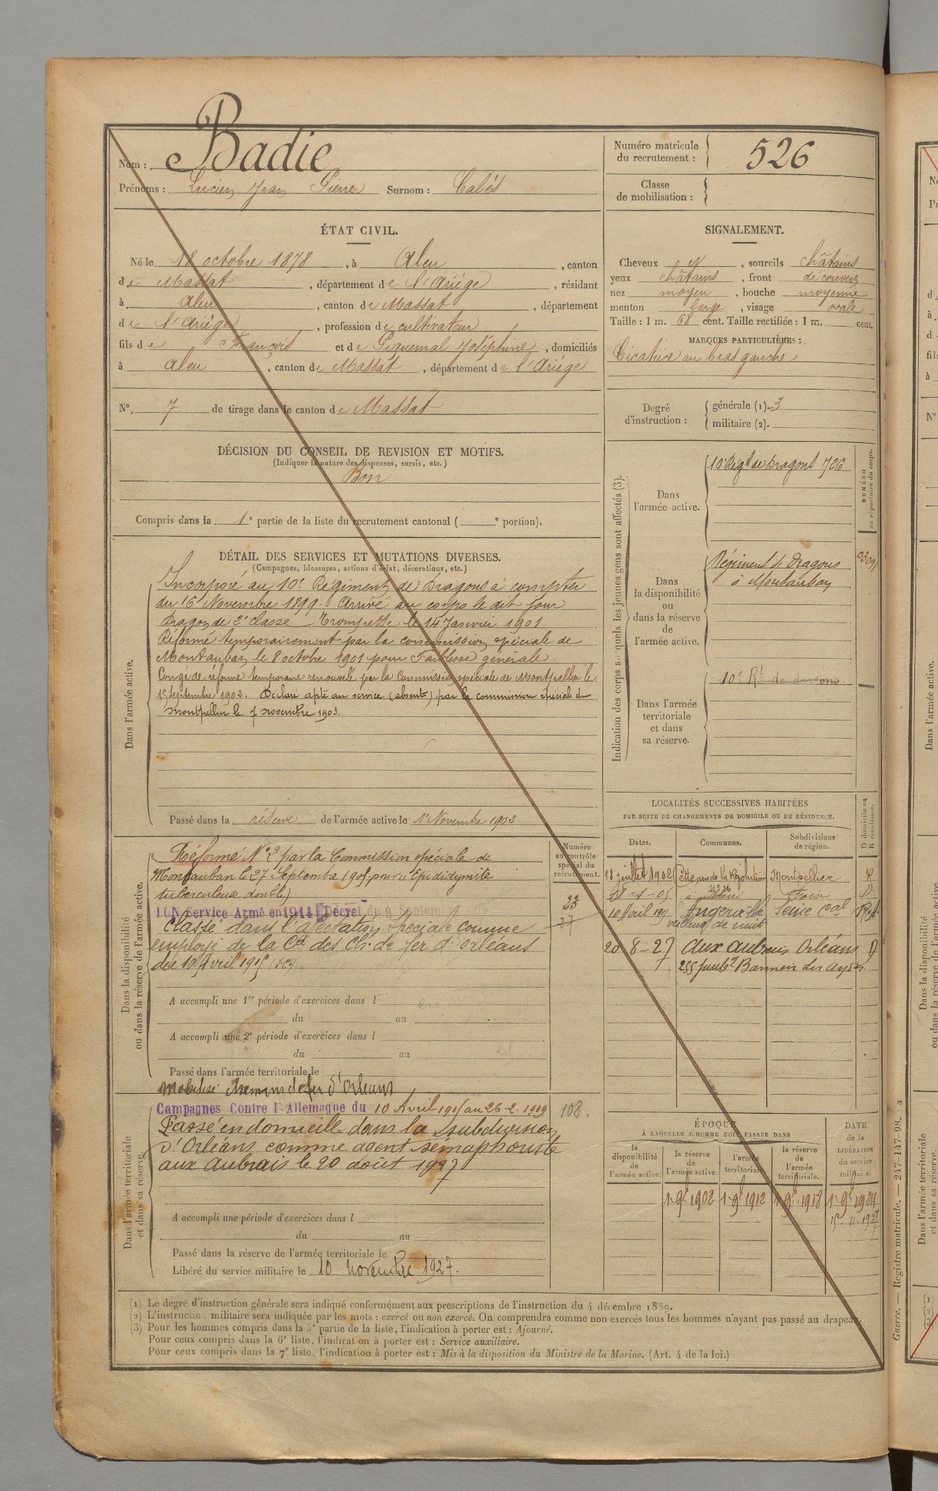 Nom : Badie
Prénoms : Lucien Jean Pierre Surnom : Calés
Numéro matricule du recrutement : 526
Classe de mobilisation :
ÉTAT CIVIL.
Né le 18 octobre 1878, à Aleu, canton
de Massat, département de l'Ariège, résidant
à Aleu, canton de Massat, département
de l'Ariège, profession de cultivateur
fils de François et de Piquemal Joséphine, domiciliés
à Aleu, canton de Massat, département de l'Ariège
N° 7 de tirage dans le canton de Massat
DÉCISION DU CONSEIL DE REVISION ET MOTIFS.
(Indiquer la nature des dispenses, sursis, etc.)
Bon
Compris dans la 1e partie de la liste du recrutement cantonal ( e portion).
SIGNALEMENT.
Cheveux , sourcils châtains
yeux châtains, front découvert
nez moyen, bouche moyenne
menton large, visage ovale
Taille : 1 m. 68 cent. Taille rectifiée : 1 m. cent.
MARQUES PARTICULIÈRES :
Cicatrice au bras gauche
Degré d'instruction : générale (1). 3
militaire (2).
DÉTAIL DES SERVICES ET MUTATIONS DIVERSES.
(Campagnes, blessures, actions d'éclat, décorations, etc.)
Dans l'armée active.
Incorporé au 10e Régiment de Dragons à compter
du 16 Novembre 1899. Arrivé au corps le dit jour
Dragon de 2e classe Trompette le 14 Janvier 1901
Réformé temporairement par la commission spéciale de
Montauban le 8 octobre 1901 pour Faiblesse générale.
Congé de réforme temporaire renouvelé par la Commission spéciale de Montpellier le
1er Septembre 1902. Déclaré apte au service (absent) par la commission spéciale de
Montpellier le 7 novembre 1903.
Passé dans la réserve de l'armée active le 1er Novembre 1902
Indication des corps auxquels les jeunes gens sont affectés (3).
Dans l'armée active.
10e Régt de Dragons 726
NUMÉRO au répertoire du corps.
Dans la disponibilité ou dans la réserve de l'armée active.
Régiment de Dragons
à Montauban
10e Rt de dragons
Dans l'armée territoriale et dans sa réserve.
Dans la disponibilité ou dans la réserve de l'armée active.
Réformé N° 2 par la Commission spéciale de
Montauban le 27 Septembre pour Epididymite
tuberculeuse double
Service Armé en 1914 Décret du 9 Septembre
Classé dans l'affectation spéciale comme
employé de la Cie des Ch. de fer d'Orléans
du 10 Avril
Numéro au contrôle spécial du recrutement.
A accompli une 1re période d'exercices dans l
du au
A accompli une 2e période d'exercices dans l
du au
Passé dans l'armée territoriale le
Mobilisé Chemins de fer d'Orléans
Dans l'armée territoriale et dans sa réserve.
Campagnes Contre l'Allemagne du 10 Avril au 26-2-1919
108.
Passé en domicile dans la subdivision
d'Orléans comme agent sémaphoriste
aux Aubrais le 20 août 1927
A accompli une période d'exercices dans l
du au
Passé dans la réserve de l'armée territoriale le
Libéré du service militaire le 10 novembre 1927.
LOCALITÉS SUCCESSIVES HABITÉES
PAR SUITE DE CHANGEMENTS DE DOMICILE OU DE RÉSIDENCE.
Dates. Communes. Subdivisions de région. D domicile ou R résidence.
juillet 1902 Montpellier R
Foix D
Avril Angerville Seine Cal
20-8-27 Aux Aubrais Orléans D
255 faubg Bannier
ÉPOQUE
A LAQUELLE L'HOMME DOIT PASSER DANS
la disponibilité de l'armée active. la réserve de l'armée active. l'armée territoriale. la réserve de l'armée territoriale. DATE de la LIBÉRATION du service militaire.
1er 9bre 1902 1er 9bre 1912 1er 9bre 1918 1er 9bre 1924
(1) Le degré d'instruction générale sera indiqué conformément aux prescriptions de l'instruction du 4 décembre 1889.
(2) L'instruction militaire sera indiquée par les mots : exercé ou non exercé. On comprendra comme non exercés tous les hommes n'ayant pas passé au drapeau.
(3) Pour les hommes compris dans la 5e partie de la liste, l'indication à porter est : Ajourné.
Pour ceux compris dans la 6e liste, l'indication à porter est : Service auxiliaire.
Pour ceux compris dans la 7e liste, l'indication à porter est : Mis à la disposition du Ministre de la Marine. (Art. 4 de la loi.)
Guerre. — Registre matricule. — 247-147-98.